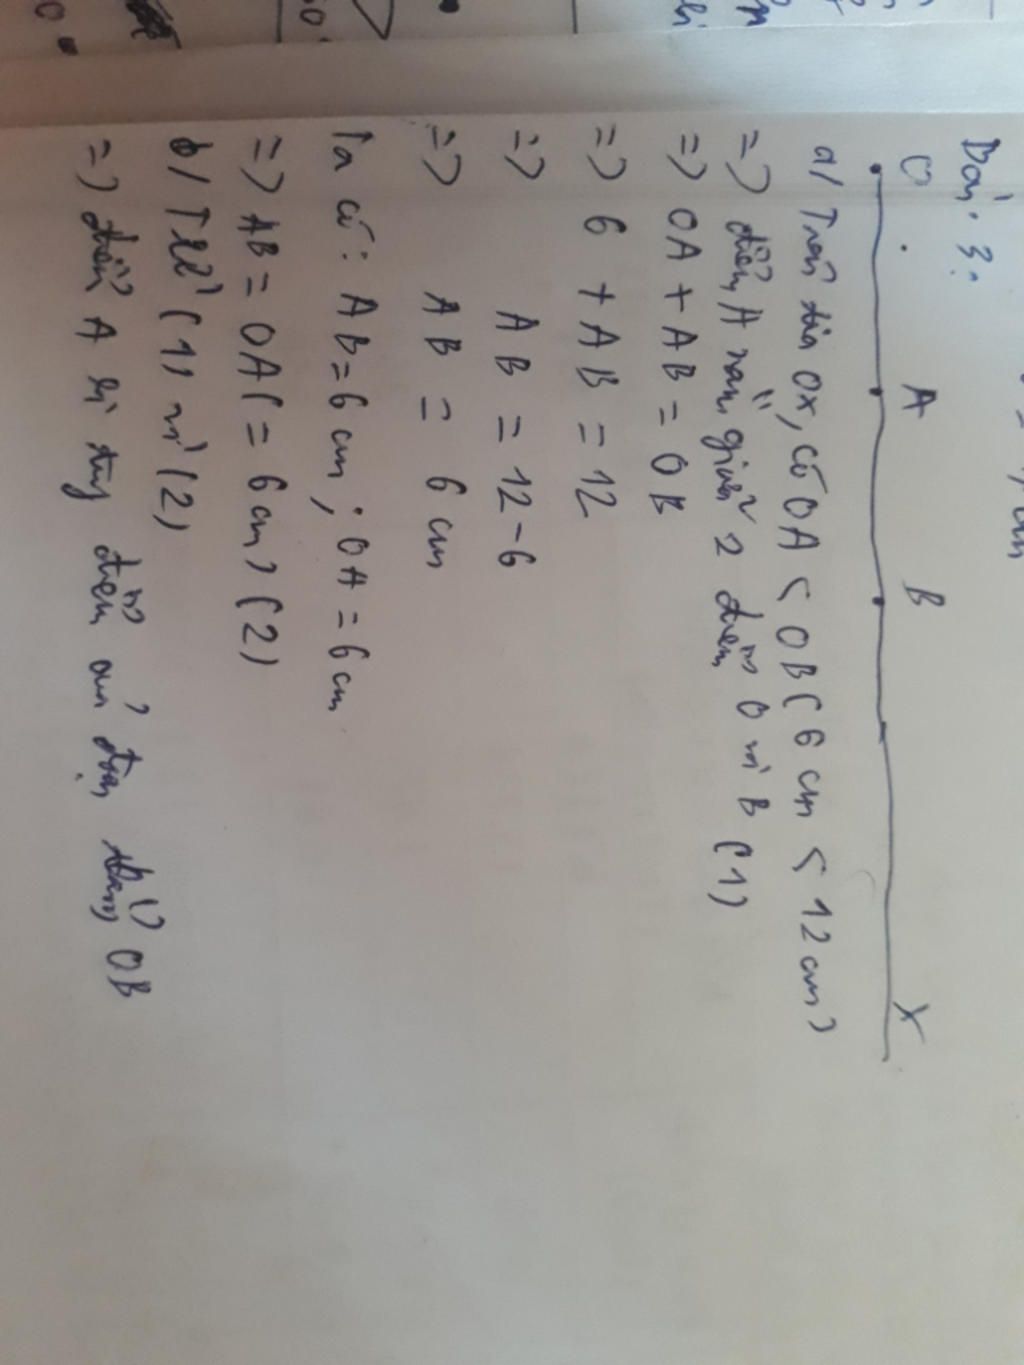 Bài 3:
O A B x
a/ Trên tia Ox, có OA < OB (6 cm < 12 cm)
=> điểm A nằm giữa 2 điểm O và B (1)
=> OA + AB = OB
=> 6 + AB = 12
=> AB = 12 - 6
=> AB = 6 cm
Ta có: AB = 6 cm; OA = 6 cm
=> AB = OA (= 6 cm) (2)
b/ Từ (1) và (2)
=> điểm A là trung điểm của đoạn thẳng OB